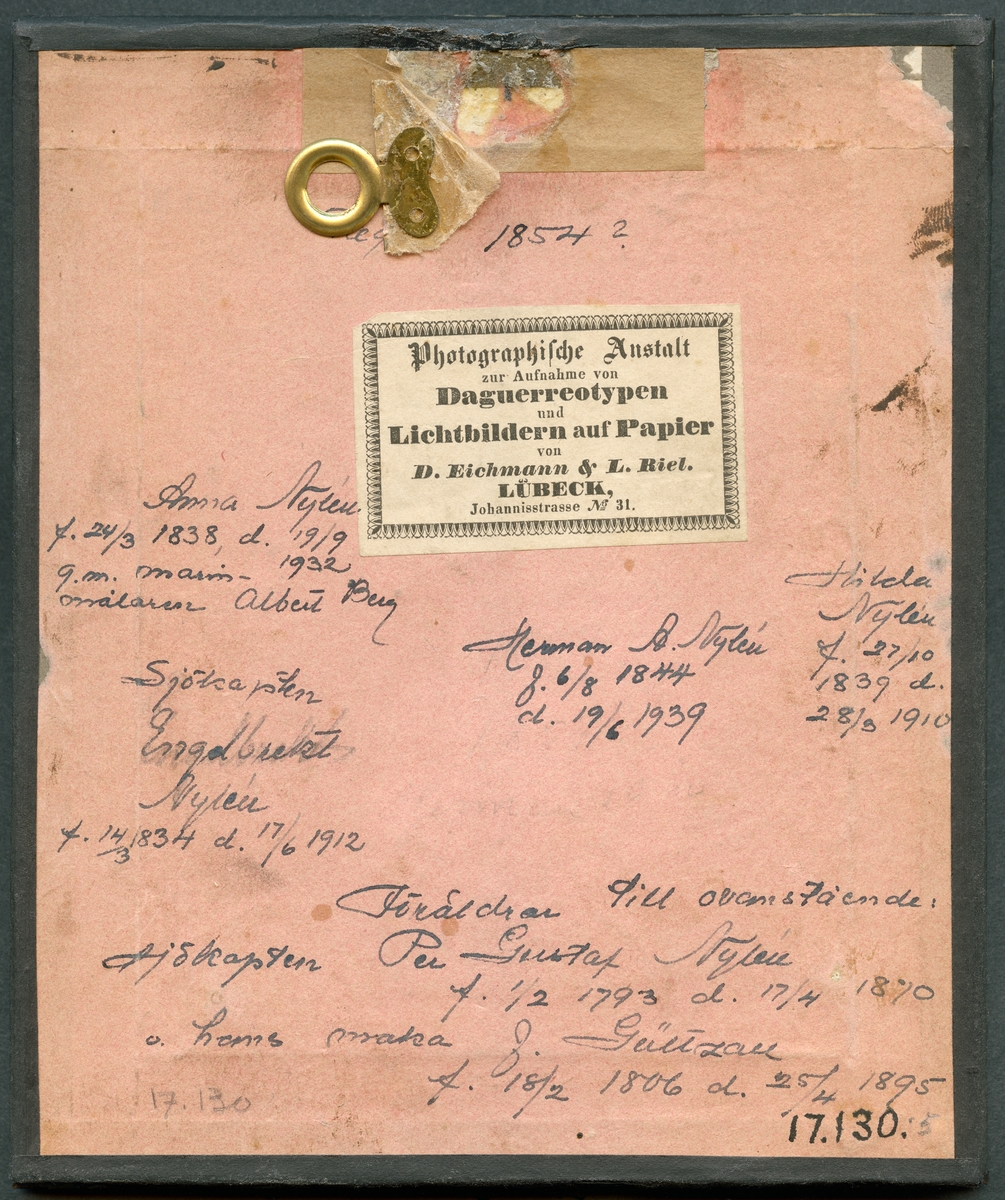 1854 ?
Photographische Anstalt
zur Aufnahme von
Daguerreotypen
und
Lichtbildern auf Papier
von
D. Eichmann & L. Riel.
LÜBECK,
Johannisstrasse № 31.
Anna Nylén
f. 24/3 1838, d. 19/9
1932
g.m. marin-
målaren Albert Berg
Hilda
Nylén
f. 27/10
1839 d.
28/3 1910
Herman A. Nylén
f. 6/8 1844
d. 19/6 1939
Sjökapten
Engelbrekt
Nylén
f. 14/3 1834 d. 17/6 1912
Föräldrar till ovanstående:
sjökapten Per Gustaf Nylén
f. 1/2 1793 d. 17/4 1870
o. hans maka J. Gültzau
f. 18/2 1806 d. 25/4 1895
17.130
17.130.